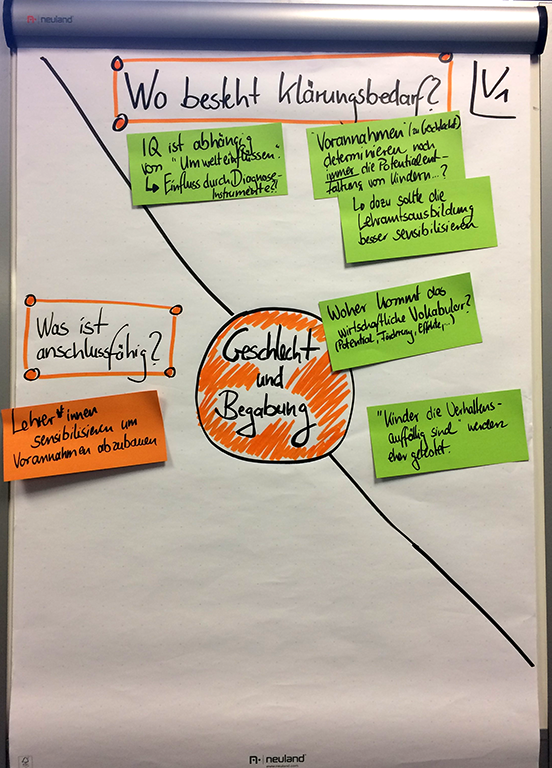 neuland
Wo besteht Klärungsbedarf?
V1
IQ ist abhängig
von "Umwelteinflüssen".
↳ Einfluss durch Diagnose-
instrumente?!
"Vorannahmen" (zu Geschlecht)
determinieren noch
immer die Potentialent-
faltung von Kindern...?
↳ dazu sollte die
Lehramtsausbildung
besser sensibilisieren
Woher kommt das
wirtschaftliche Vokabular?
(Potential, Förderung,
"Kinder die Verhaltens-
auffällig sind" werden
eher getestet.
Was ist
anschlussfähig?
Lehrer*innen
sensibilisieren um
Vorannahmen abzubauen
Geschlecht
und
Begabung
neuland
www.neuland.com